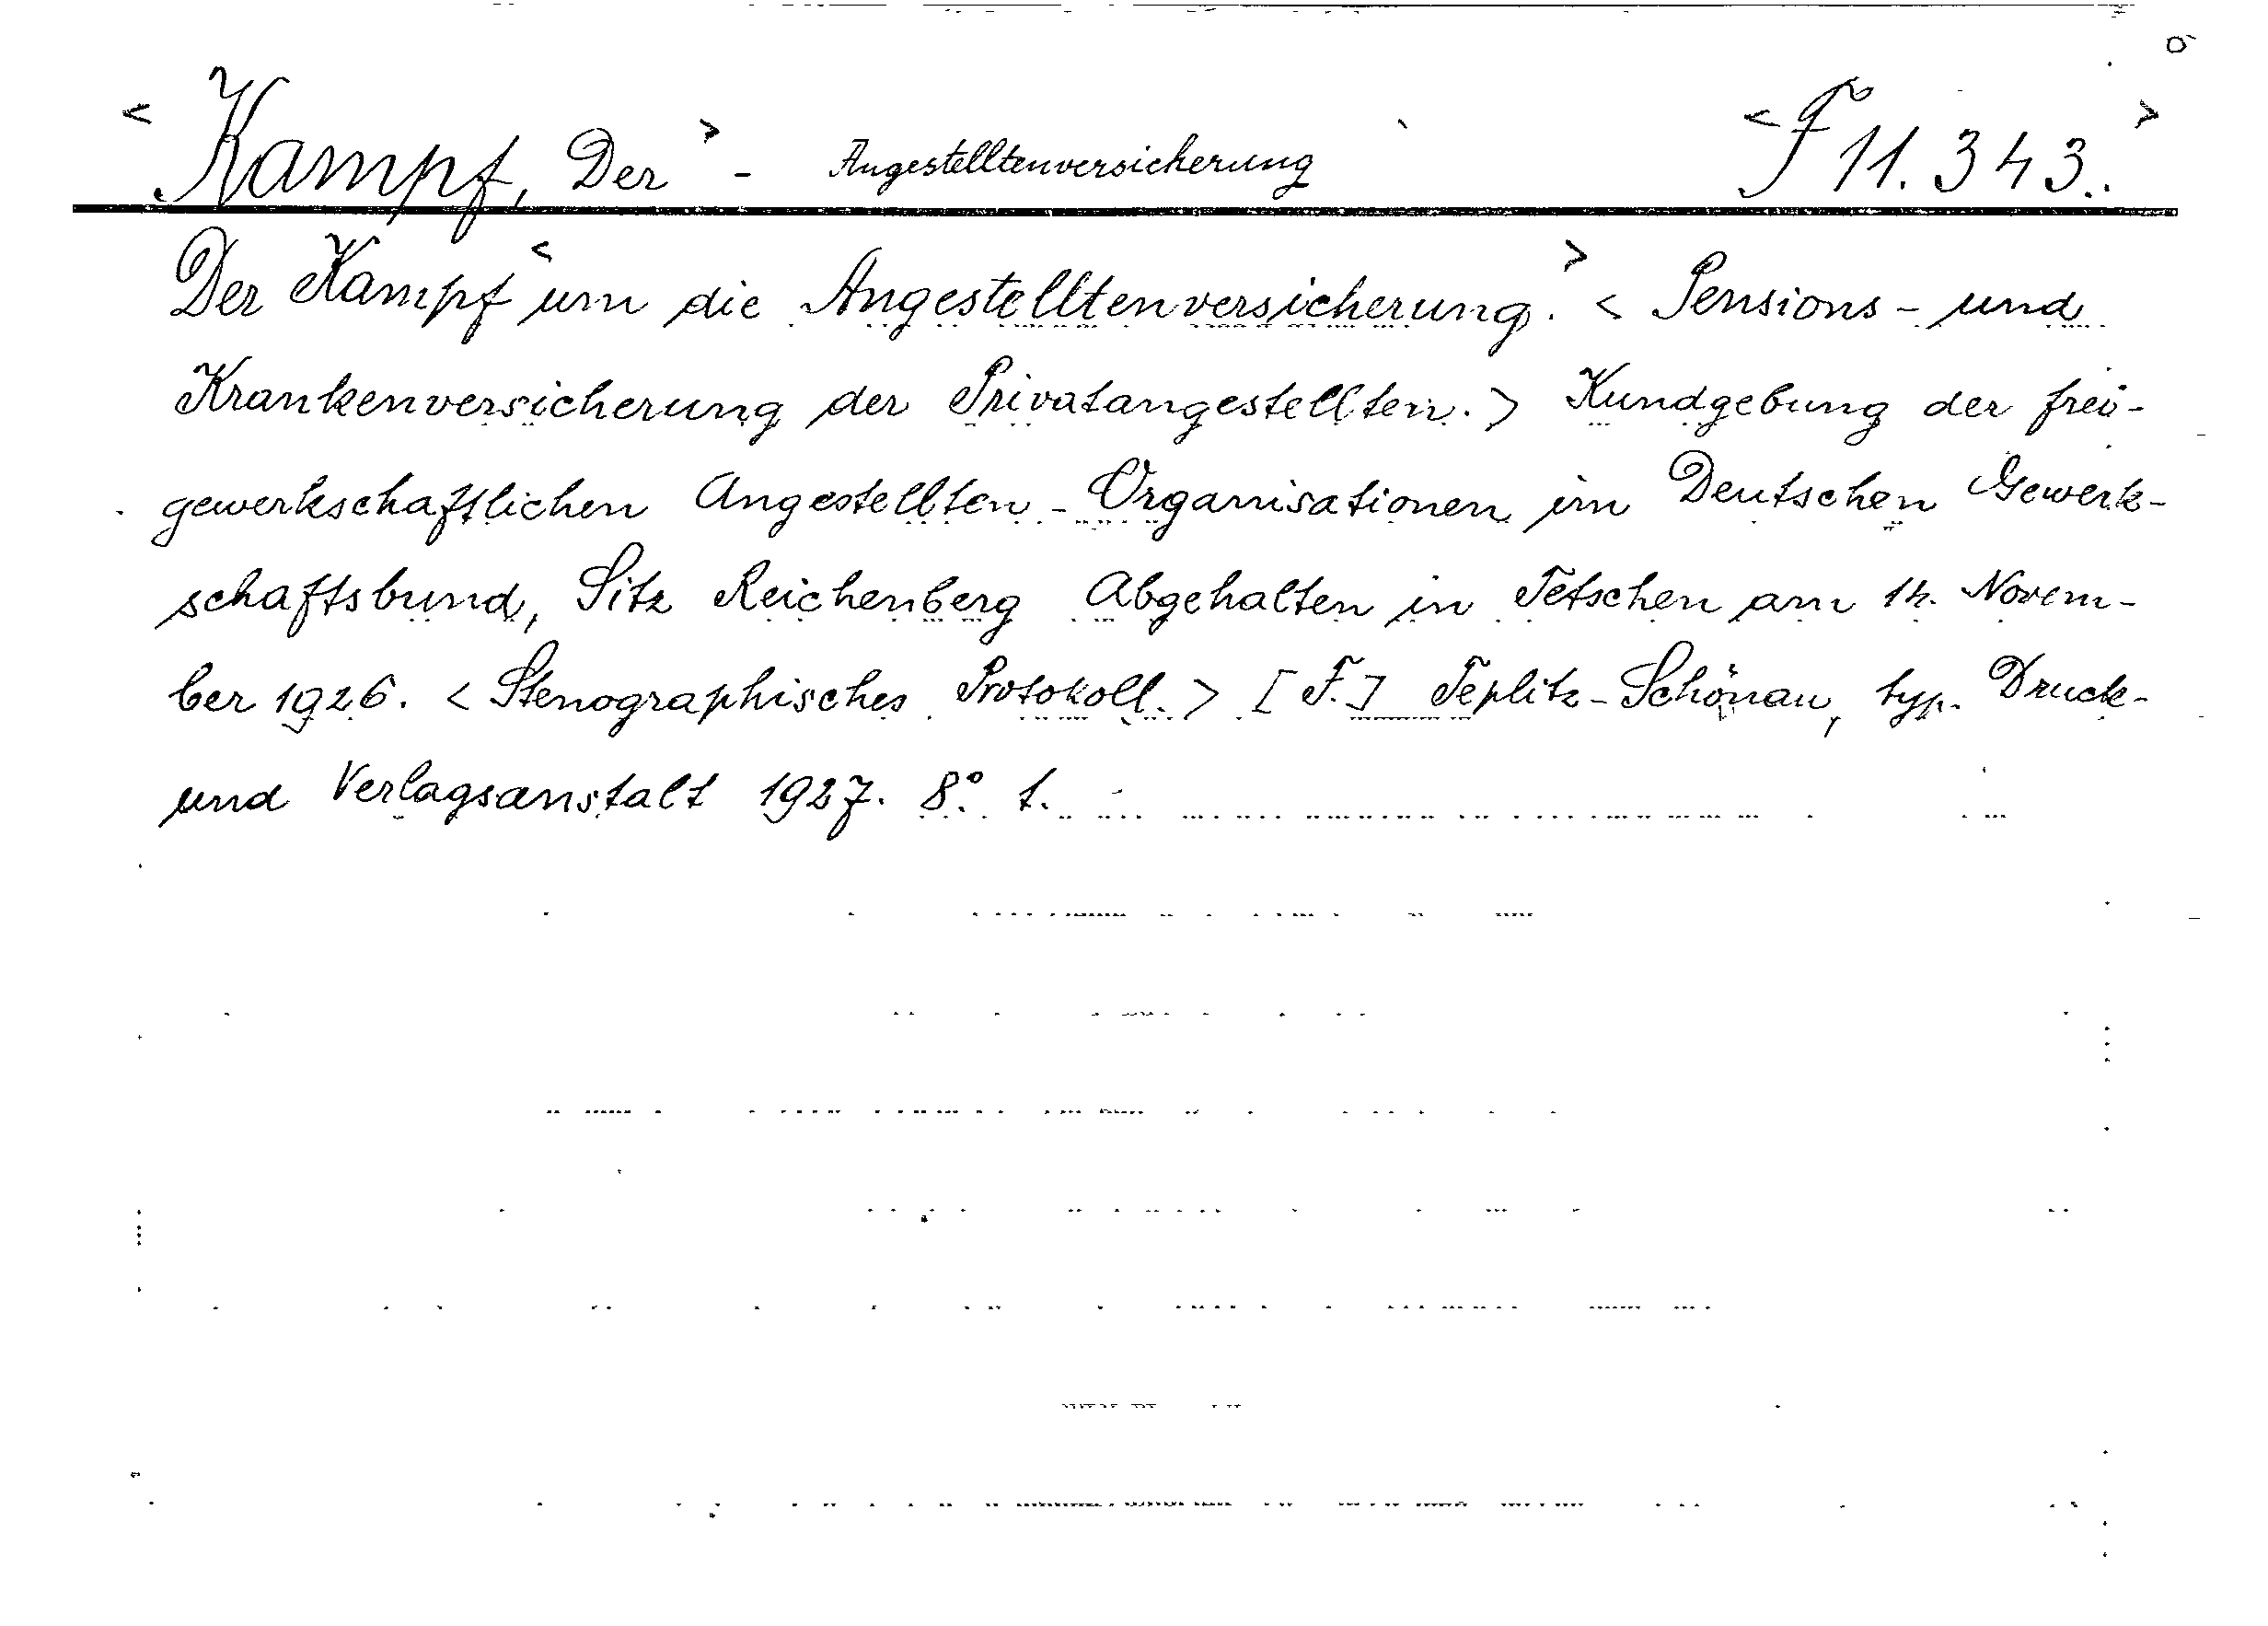 < Kampf, Der > - Angestelltenversicherung < F 11.343. >
Der Kampf < um die Angestelltenversicherung. > < Pensions- und
Krankenversicherung der Privatangestellten. > Kundgebung der frei-
gewerkschaftlichen Angestellten-Organisationen im Deutschen Gewerk-
schaftsbund, Sitz Reichenberg Abgehalten in Tetschen am 14. Novem-
ber 1926. < Stenographisches Protokoll. > [F.] Teplitz-Schönau, typ. Druck-
und Verlagsanstalt 1927. 8° 1.